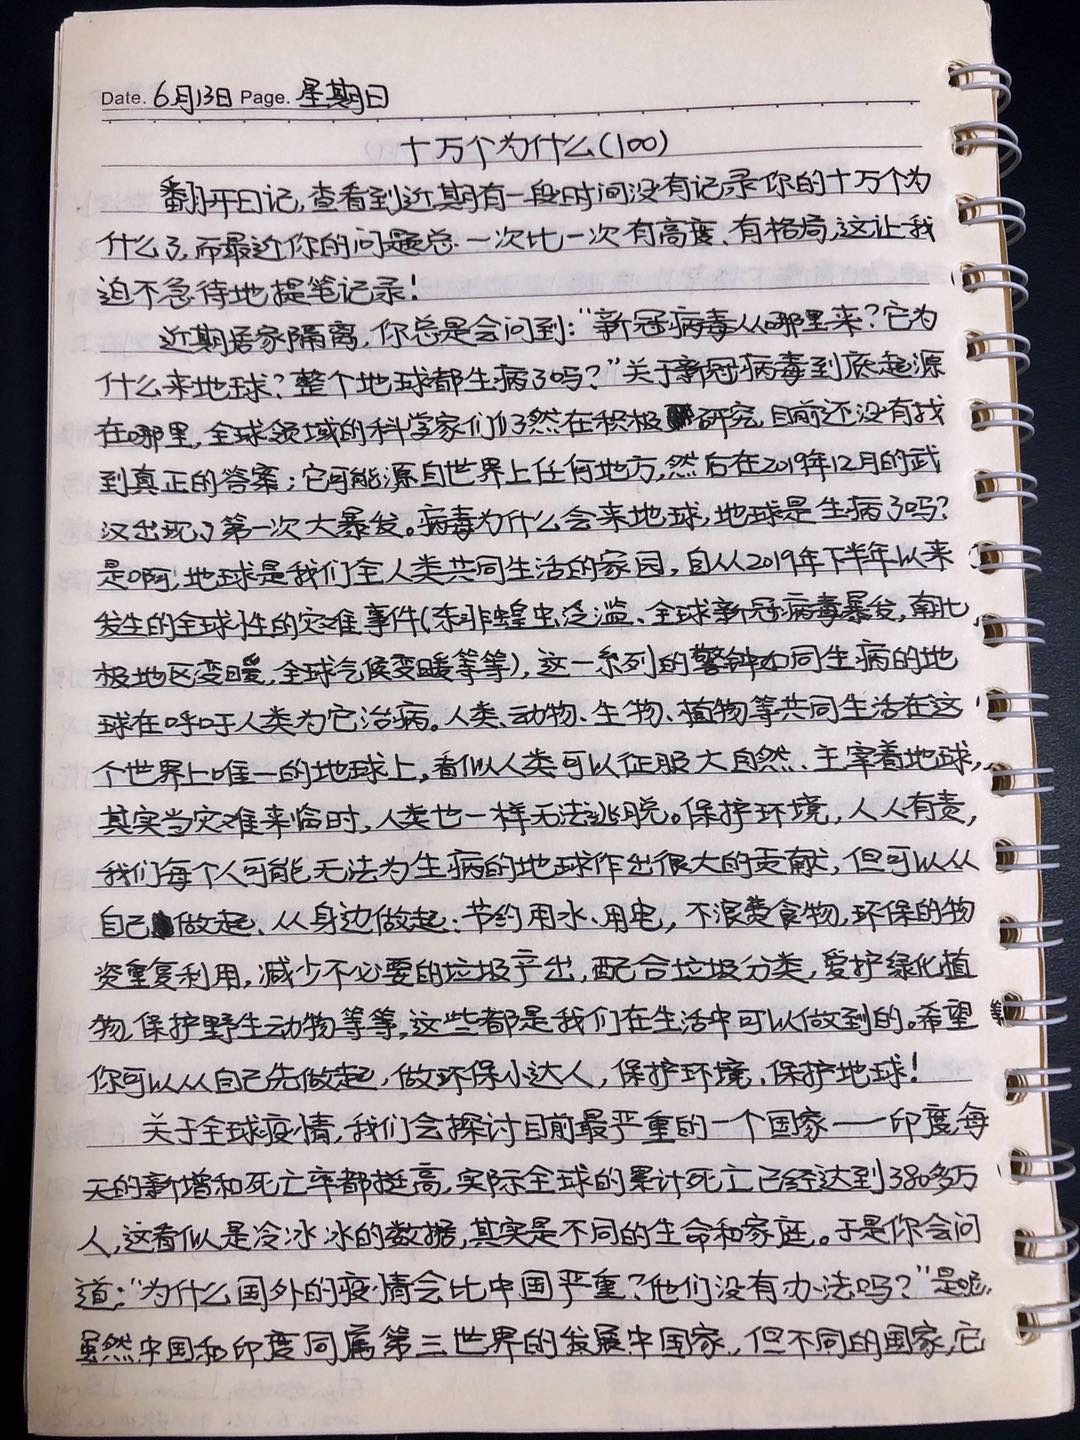 Date. 6月13日 Page. 星期日
十万个为什么(100)
翻开日记,查看到近期有一段时间没有记录你的十万个为
什么了,而最近你的问题总一次比一次有高度、有格局,这让我
迫不急待地提笔记录!
近期居家隔离,你总是会问到:"新冠病毒从哪里来?它为
什么来地球?整个地球都生病了吗?"关于新冠病毒到底起源
在哪里,全球领域的科学家们仍然在积极研究,目前还没有找
到真正的答案;它可能源自世界上任何地方,然后在2019年12月的武
汉出现了第一次大暴发。病毒为什么会来地球,地球是生病了吗?
是啊,地球是我们全人类共同生活的家园,自从2019年下半年以来
发生的全球性的灾难事件(东非蝗虫泛滥、全球新冠病毒暴发,南北
极地区变暖,全球气候变暖等等),这一系列的警钟如同生病的地
球在呼吁人类为它治病。人类、动物、生物、植物等共同生活在这
个世界上唯一的地球上,看似人类可以征服大自然、主宰着地球,
其实当灾难来临时,人类也一样无法逃脱。保护环境,人人有责,
我们每个人可能无法为生病的地球作出很大的贡献,但可以从
自己做起、从身边做起:节约用水、用电,不浪费食物,环保的物
资重复利用,减少不必要的垃圾产出,配合垃圾分类,爱护绿化植
物,保护野生动物等等,这些都是我们在生活中可以做到的。希望
你可以从自己先做起,做环保小达人,保护环境、保护地球!
关于全球疫情,我们会探讨目前最严重的一个国家——印度,每
天的新增和死亡率都挺高,实际全球的累计死亡已经达到380多万
人,这看似是冷冰冰的数据,其实是不同的生命和家庭。于是你会问
道:"为什么国外的疫情会比中国严重?他们没有办法吗?"是呢,
虽然中国和印度同属第三世界的发展中国家,但不同的国家,它